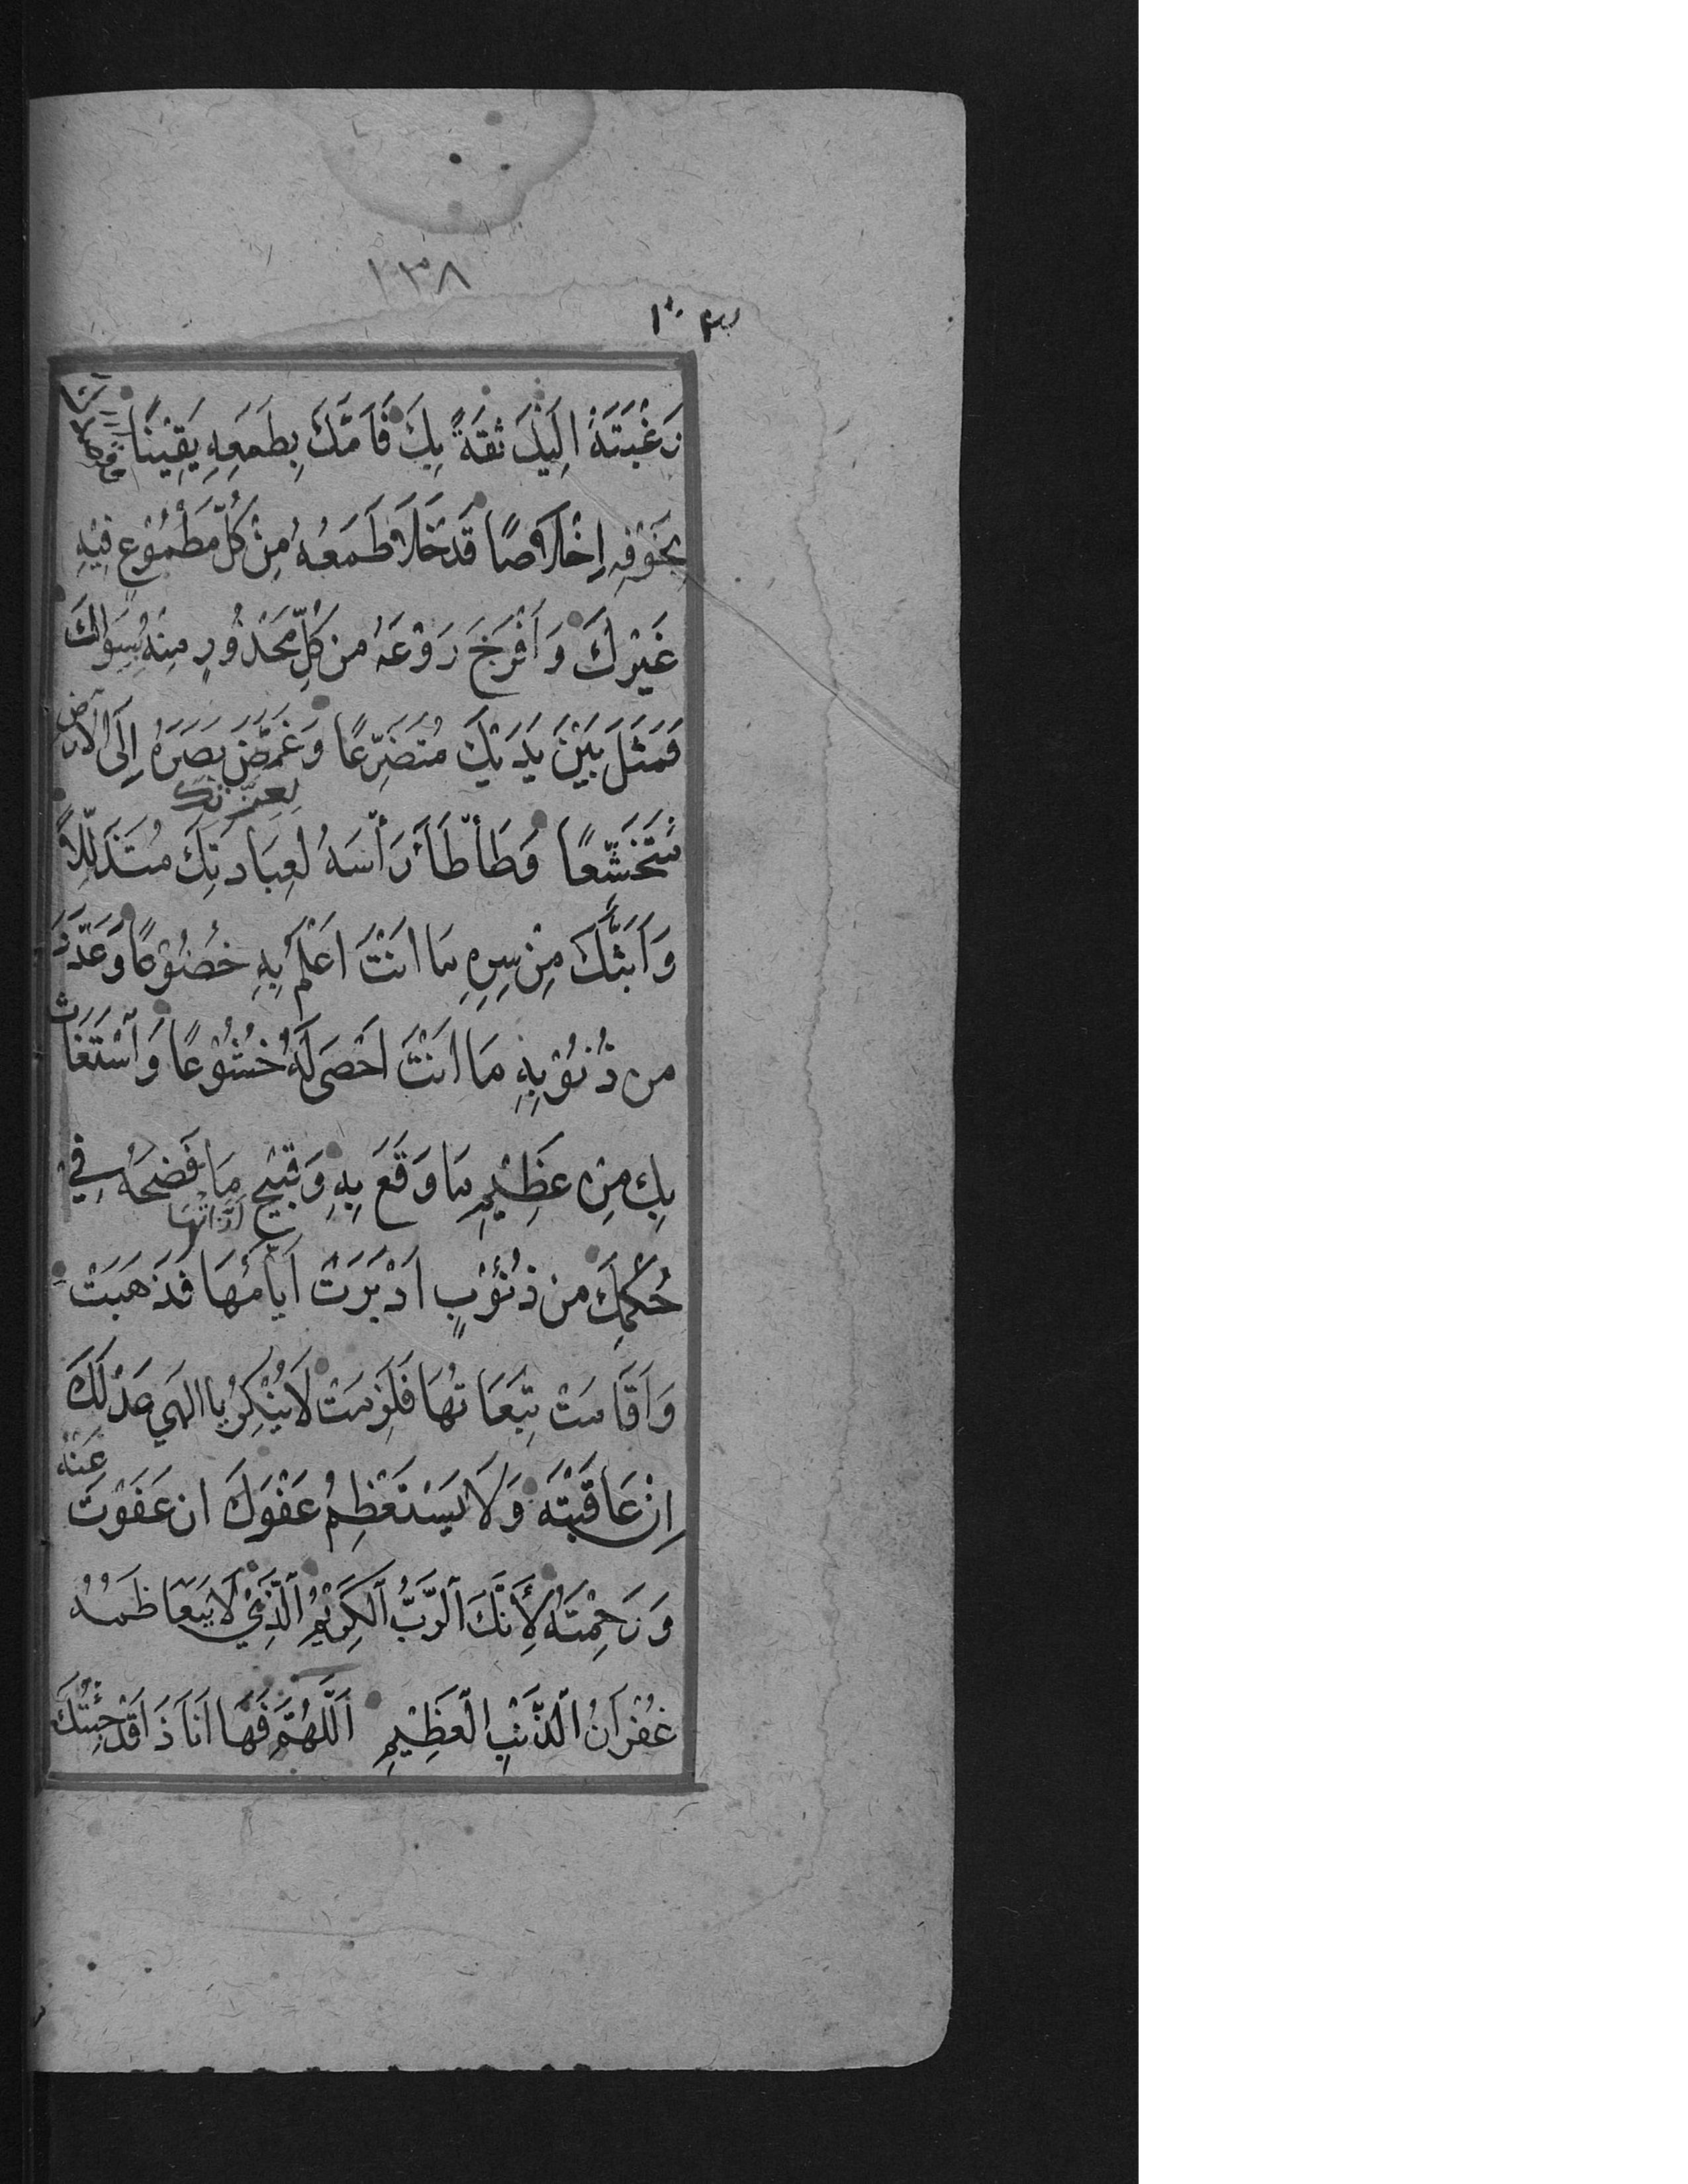 ١٣٨
رَغْبَتَهُ اِلَيْكَ ثِقَةً بِكَ فَاَمَّكَ بِطَمَعِهِ يَقِيْنًا
بِخَوْفِهِ اِخْلَاصًا قَدْ خَلَا طَمَعُهُ مِنْ كُلِّ مَطْمُوْعٍ فِيْهِ
غَيْرِكَ وَاَفْرَخَ رَوْعُهُ مِن كُلِّ مَحْذُورٍ مِنْهُ سِوَاكَ
فَمَثَلَ بَيْنَ يَدَيْكَ مُتَضَرِّعًا وَغَمَّضَ بَصَرَهُ اِلَى الْاَرْضِ
لِعِزَّتِكَ
مُتَخَشِّعًا وَطَأطَأَ رَأْسَهُ لِعِبَادَتِكَ مُتَذَلِّلًا
وَاَبَثَّكَ مِنْ سِرِّهِ مَا اَنْتَ اَعْلَمُ بِهِ خُضُوْعًا وَعَدَّدَ
مِن ذُنُوْبِهِ مَا اَنْتَ اَحْصَى لَهُ خُشُوْعًا وَاسْتَغَاثَ
بِكَ مِنْ عَظِيْمِ مَا وَقَعَ بِهِ وَقَبِيْحِ مَا فَضَحَهُ فِي
لَذَّاتُهَا
حُكْمِكَ مِن ذُنُوْبٍ اَدْبَرَتْ اَيَّامُهَا فَذَهَبَتْ
وَاَقَامَتْ تَبِعَاتُهَا فَلَزِمَتْ لَا يُنْكِرُ يَا اِلٰهِي عَدْلَكَ
عَنْهُ
اِنْ عَاقَبْتَهُ وَلَا يَسْتَعْظِمُ عَفْوَكَ ان عَفَوْتَ
وَرَحِمْتَهُ لِأَنَّكَ الرَّبُّ الْكَرِيْمُ الَّذِيْ لَا يَتَعَاظَمُهُ
غُفْرَانُ الذَّنْبِ الْعَظِيْمِ اَللّٰهُمَّ فَهَا اَنَا ذَا قَدْ جِئْتُكَ